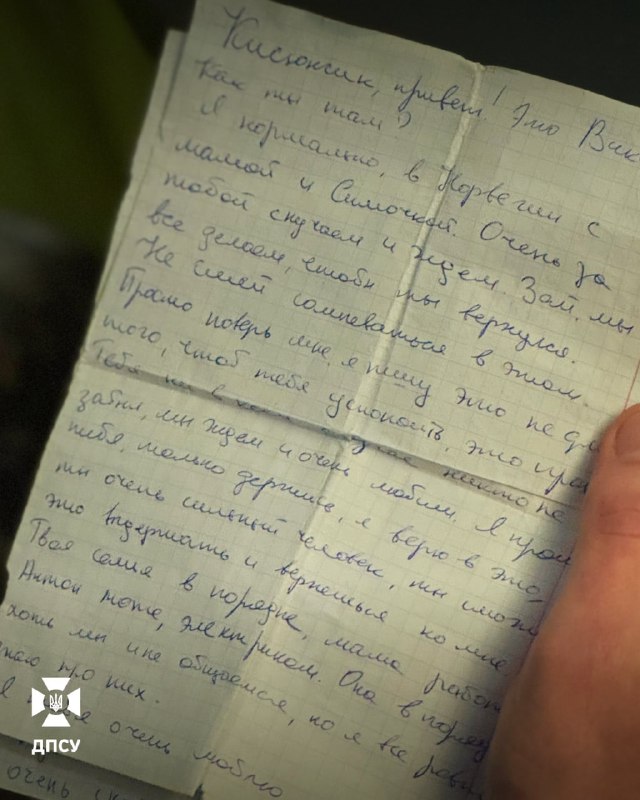 Кисюнсик, привет! Это Вик
Как ты там?
Я нормально, в Норвегии с
мамой и Симочкой. Очень за
тобой скучаем и ждем. Зай, мы
все делаем, чтобы ты вернулся.
Не смей сомневаться в этом.
Просто поверь мне, я пишу это не для
того, чтоб тебя успокоить, это прав
Тебя ни в случае никто не
забыл, мы ждем и очень любим. Я прош
тебя, только держись, я верю в это,
ты очень сильный человек, ты сможе
это выдержать и вернешься ко мне
Твоя семья в порядке, мама работ
Антон тоже, электриком. Она в поряд
хоть мы и не общаемся, но я все равн
знаю про них.
Я очень люблю
очень ск
ДПСУ